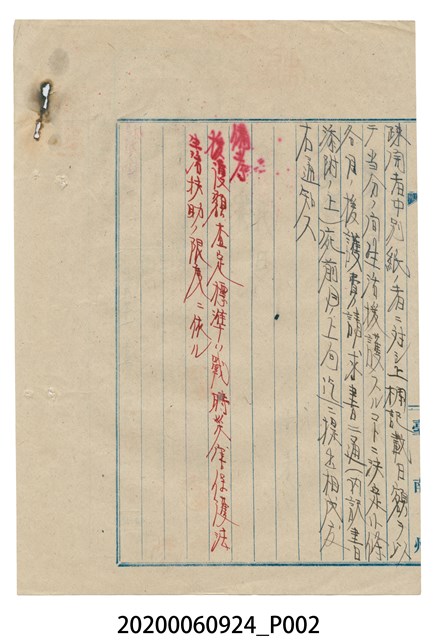 疎完者中別紙ノ者ニ対シ上欄記載日額ヲ以
テ当分ノ間生活援護スルコトニ決定候條
各月ノ援護費請求書二通(内訳書
添附ノ上)定前月上旬迄ニ提出相成度
右通知ス
備考
援護額査定標準ハ戰時災害保護法
生活扶助ノ限度ニ依ル
臺南州
20200060924_P002